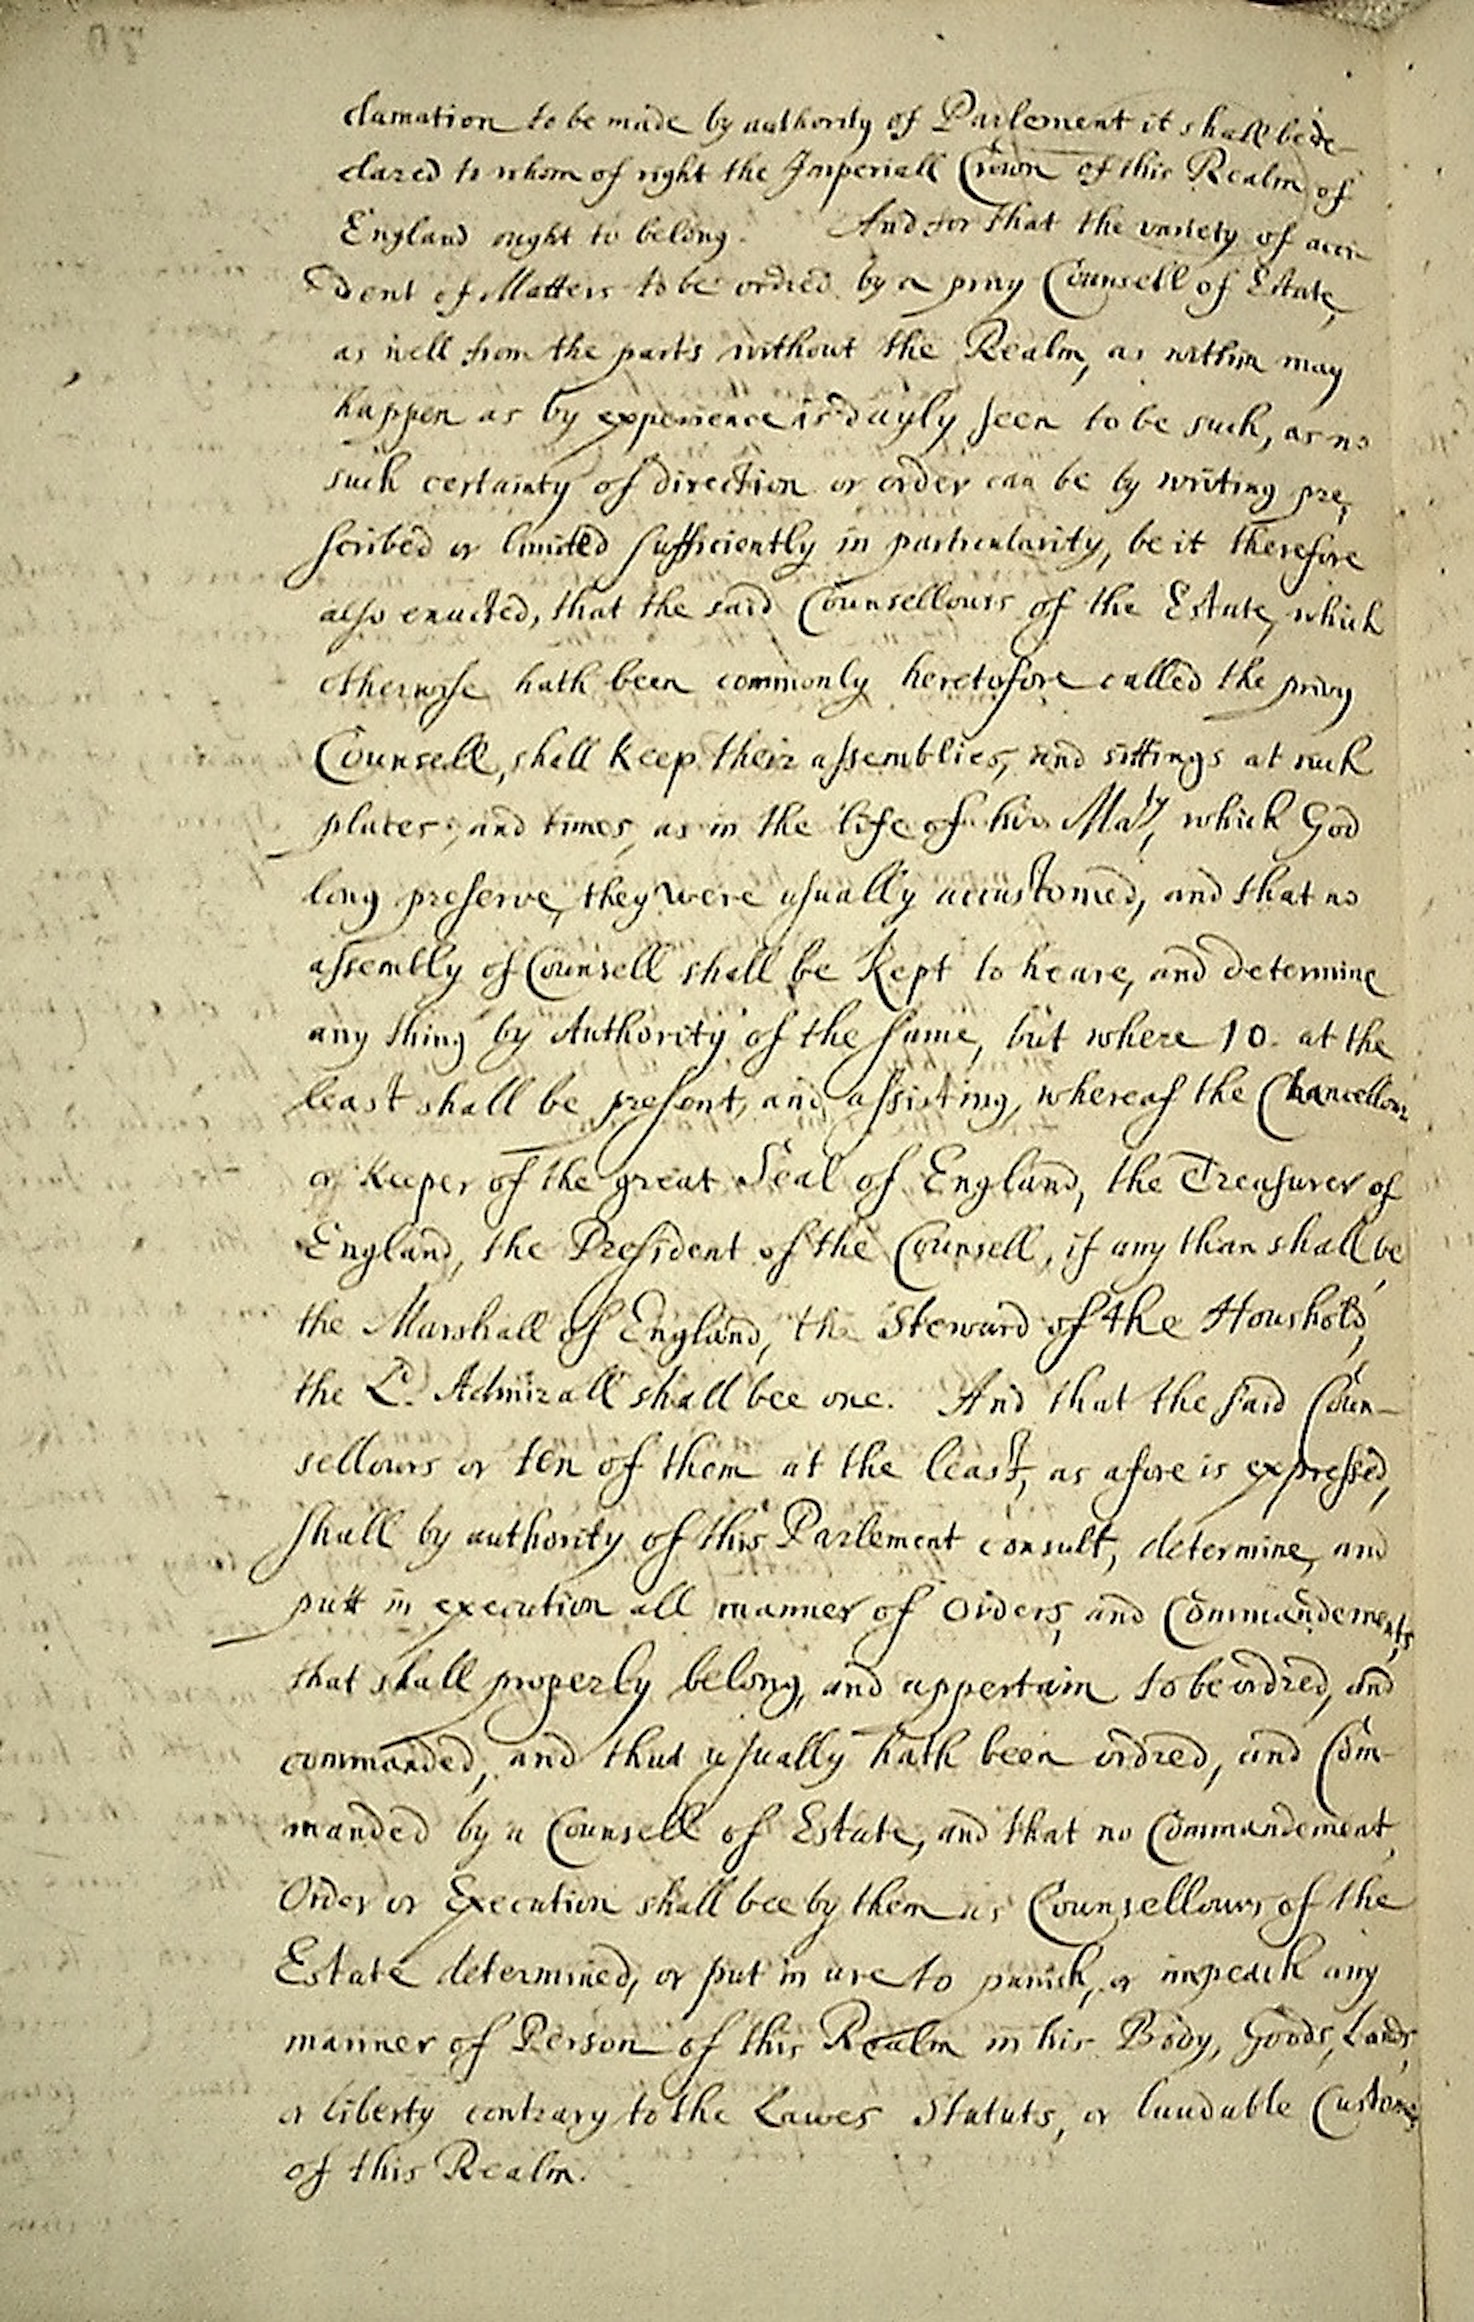 clamation to be made by authority of Parlement it shall be de-
clared to whom of right the Imperiall Crown of this Realm of
England ought to belong. And for that the variety of acci-
dent of Matters to be ordred by a privy Counsell of Estate,
as well from the parts without the Realm, as within may
happen as by experience is dayly seen to be such, as no
such certainty of direction or order can be by writing pre,
scribed or limited sufficiently in particularity, be it therefore
also enacted, that the said Counsellours of the Estate, which
otherwise hath been commonly heretofore called the privy
Counsell, shall keep their assemblies, and sittings at such
places, and times, as in the life of his Maty, which God
long preserve, they were usually accustomed, and that no
assembly of Counsell shall be kept to heare, and determine
any thing by Authority of the same, but where 10. at the
least shall be present, and assisting, whereof the Chancellour
or Keeper of the great Seal of England, the Treasurer of
England, the President of the Counsell, if any than shall be
the Marshall of England, the Steward of the Houshold,
the Ld. Admirall shall bee one. And that the said Coun-
sellours or ten of them at the least, as afore is expressed,
shall by authority of this Parlement consult, determine, and
putt in execution all manner of Orders, and Commandements
that shall properly belong, and appertain to be ordred, and
commanded, and thus usually hath been ordred, and Com-
manded by a Counsell of Estate, and that no Commandement,
Order or Execution shall bee by them as Counsellours of the
Estate determined, or put in ure to punish, or impeach any
manner of Person of this Realm in his Body, Goods, Lands,
or liberty contrary to the Lawes Statuts, or laudable Customes
of this Realm.